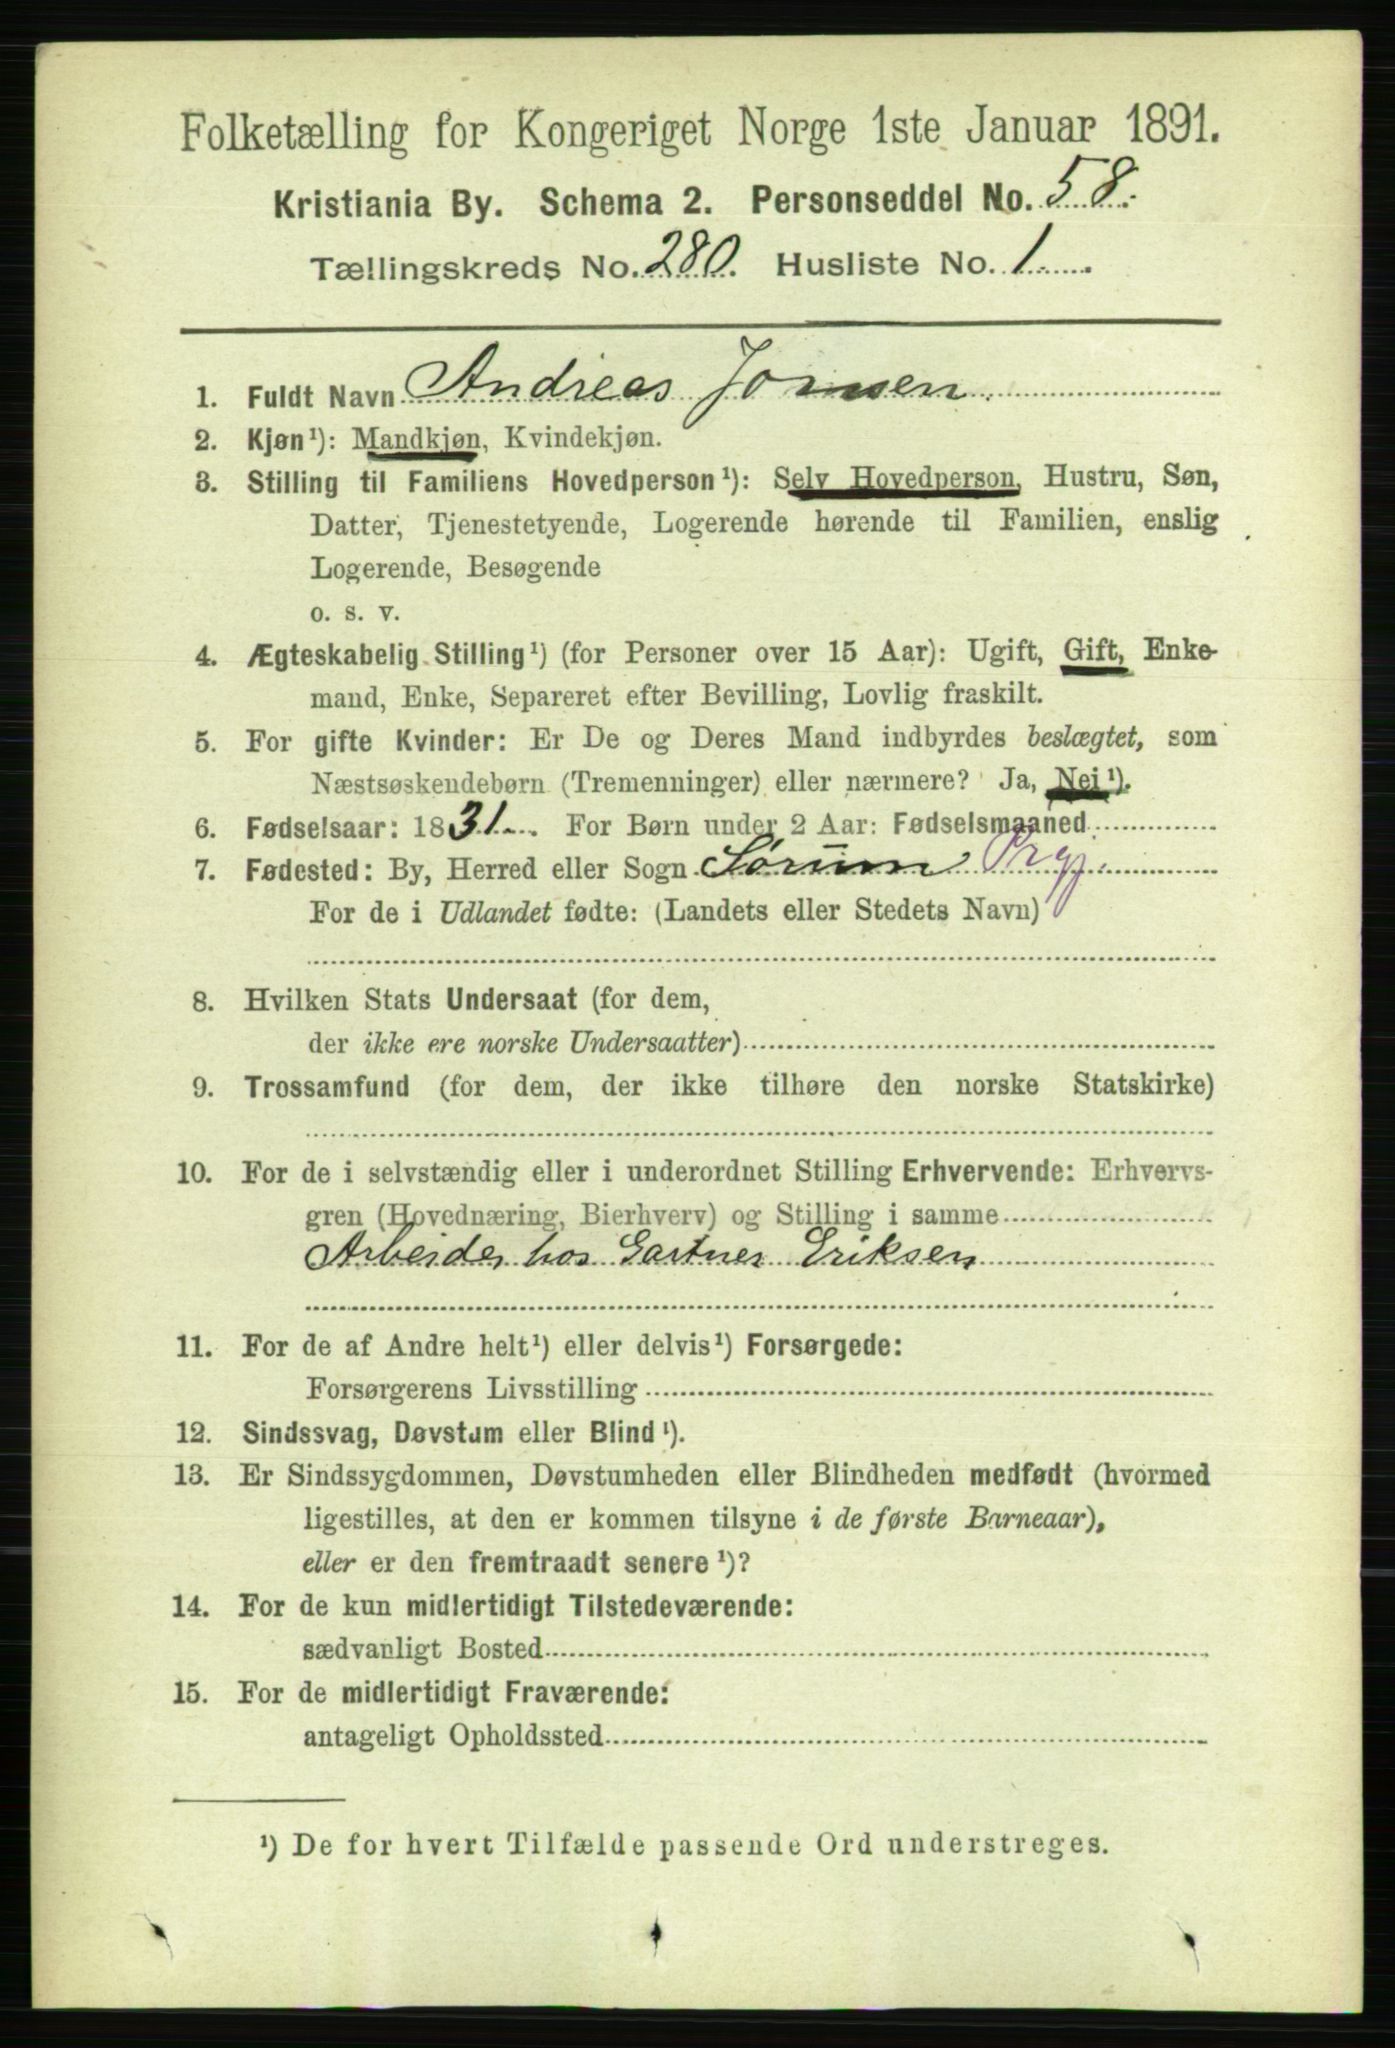 Folketælling for Kongeriget Norge 1ste Januar 1891.
Kristiania By. Schema 2. Personseddel No. 58.
Tællingskreds No. 280. Husliste No. 1
1. Fuldt Navn Andreas Jonsen.
2. Kjøn¹): Mandkjøn, Kvindekjøn.
3. Stilling til Familiens Hovedperson¹): Selv Hovedperson, Hustru, Søn,
Datter, Tjenestetyende, Logerende hørende til Familien, enslig
Logerende, Besøgende
o. s. v.
4. Ægteskabelig Stilling¹) (for Personer over 15 Aar): Ugift, Gift, Enke-
mand, Enke, Separeret efter Bevilling, Lovlig fraskilt.
5. For gifte Kvinder: Er De og Deres Mand indbyrdes beslægtet, som
Næstsøskendebørn (Tremenninger) eller nærmere? Ja, Nei¹).
6. Fødselsaar: 1831. For Børn under 2 Aar: Fødselsmaaned
7. Fødested: By, Herred eller Sogn Sørum Prgj.
For de i Udlandet fødte: (Landets eller Stedets Navn)
8. Hvilken Stats Undersaat (for dem,
der ikke ere norske Undersaatter)
9. Trossamfund (for dem, der ikke tilhøre den norske Statskirke)
10. For de i selvstændig eller i underordnet Stilling Erhvervende: Erhvervs-
gren (Hovednæring, Bierhverv) og Stilling i samme
Arbeider hos Gartner Eriksen
11. For de af Andre helt¹) eller delvis¹) Forsørgede:
Forsørgerens Livsstilling
12. Sindssvag, Døvstum eller Blind¹).
13. Er Sindssygdommen, Døvstumheden eller Blindheden medfødt (hvormed
ligestilles, at den er kommen tilsyne i de første Barneaar),
eller er den fremtraadt senere¹)?
14. For de kun midlertidigt Tilstedeværende:
sædvanligt Bosted
15. For de midlertidigt Fraværende:
antageligt Opholdssted
¹) De for hvert Tilfælde passende Ord understreges.